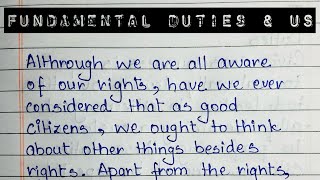 FUNDAMENTAL DUTIES & US
Althrough we are all aware
of our rights, have we ever
considered that as good
citizens, we ought to think
about other things besides
rights. Apart from the rights,